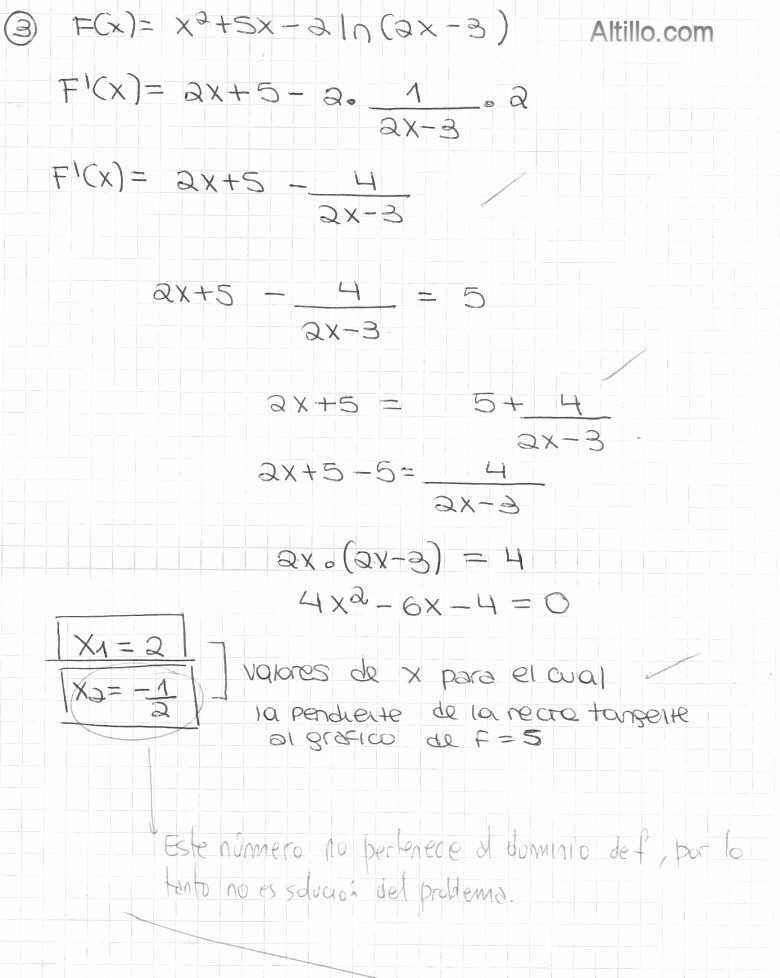 ③ F(x) = x² + 5x - 2 ln (2x - 3)
Altillo.com
F'(x) = 2x + 5 - 2 · 1/(2x - 3) · 2
F'(x) = 2x + 5 - 4/(2x - 3)
2x + 5 - 4/(2x - 3) = 5
2x + 5 = 5 + 4/(2x - 3)
2x + 5 - 5 = 4/(2x - 3)
2x · (2x - 3) = 4
4x² - 6x - 4 = 0
x1 = 2
x2 = -1/2
valores de x para el cual
la pendiente de la recta tangente
al gráfico de f = 5
Este número no pertenece al dominio de f, por lo
tanto no es solución del problema.